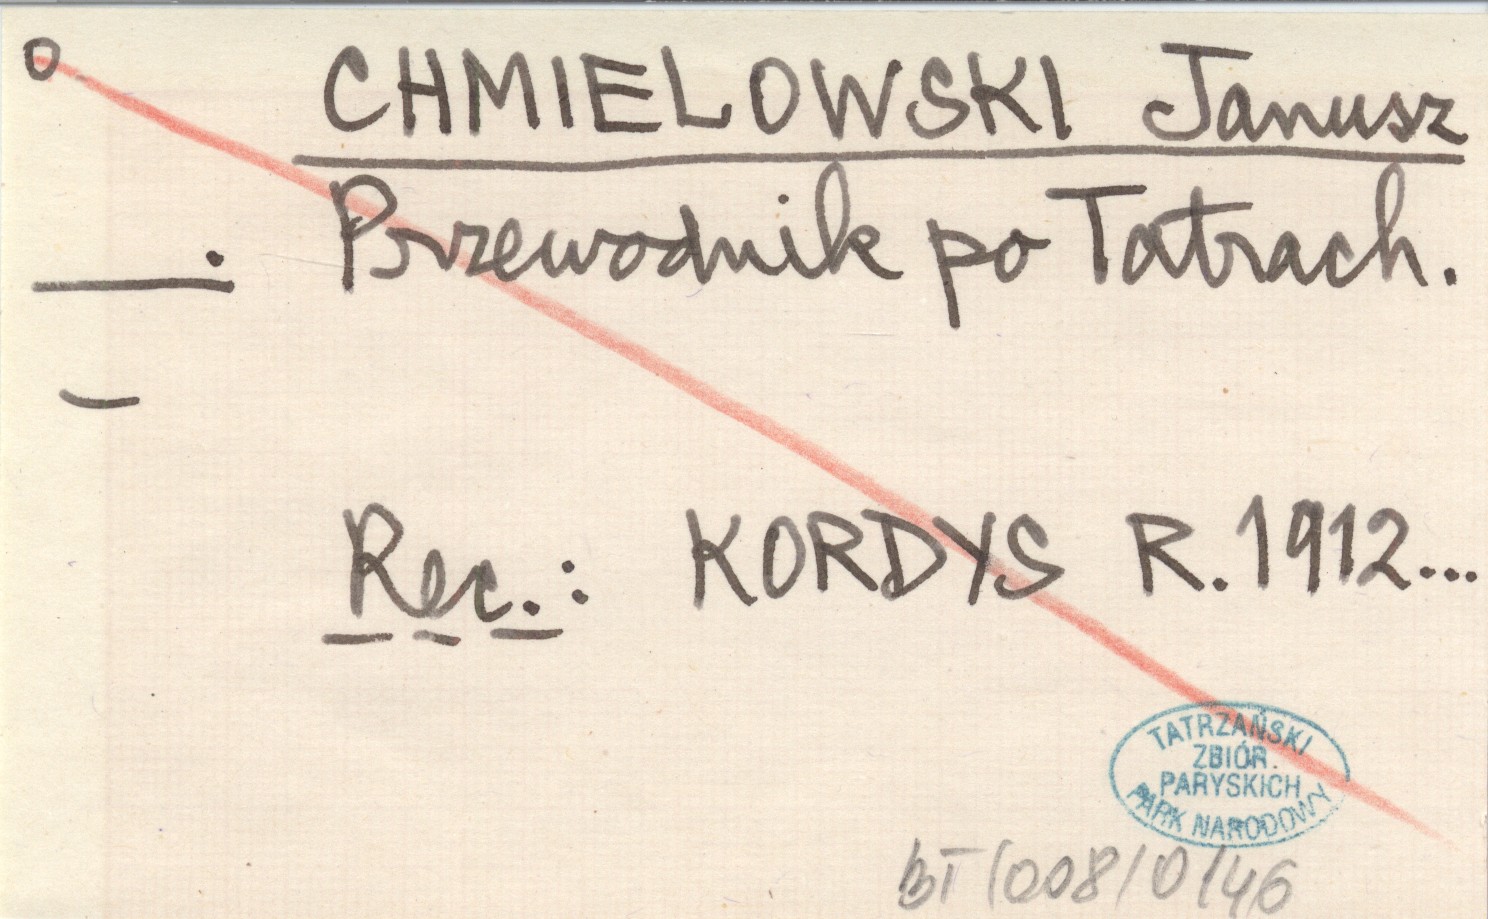 CHMIELOWSKI Janusz
Przewodnik po Tatrach.
Rec.: KORDYS R. 1912...
TATRZAŃSKI
ZBIÓR.
PARYSKICH
PARK NARODOWY
BT/008/0/46